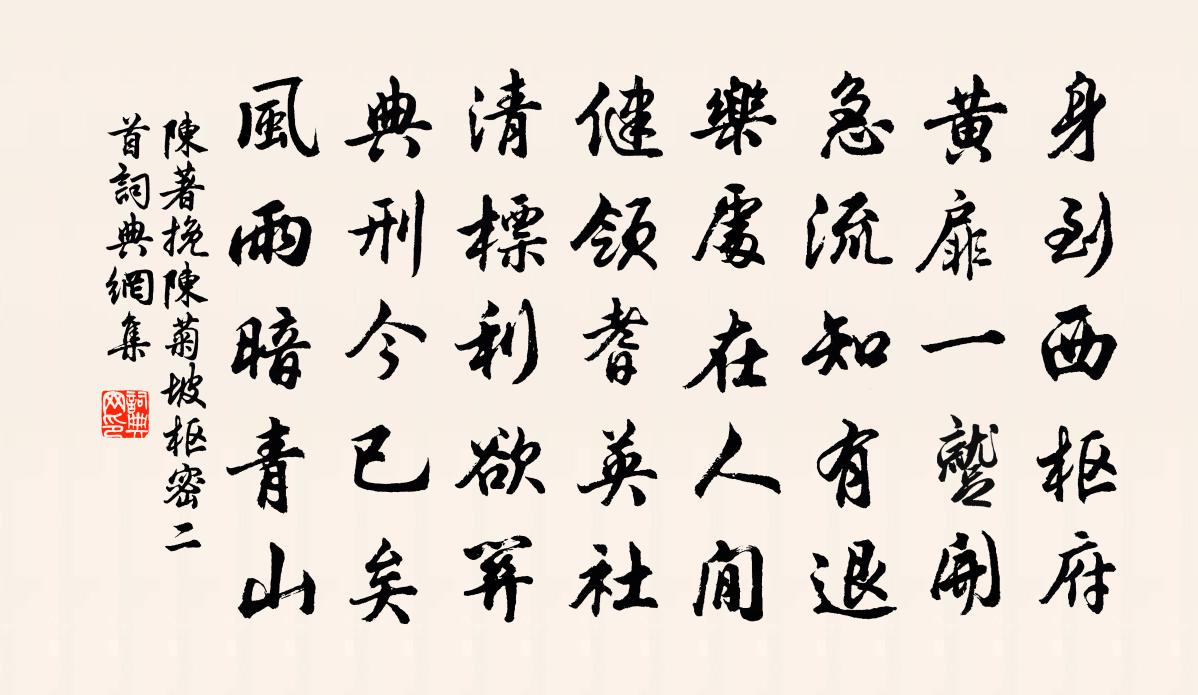 身到西枢府
黃扉一開
急流知有退
樂處在人間
健領耆英社
清標利欲
典刑今已矣
風雨暗青山
陳著挽陳菊坡枢密二
首詞典網集
詞典
网印